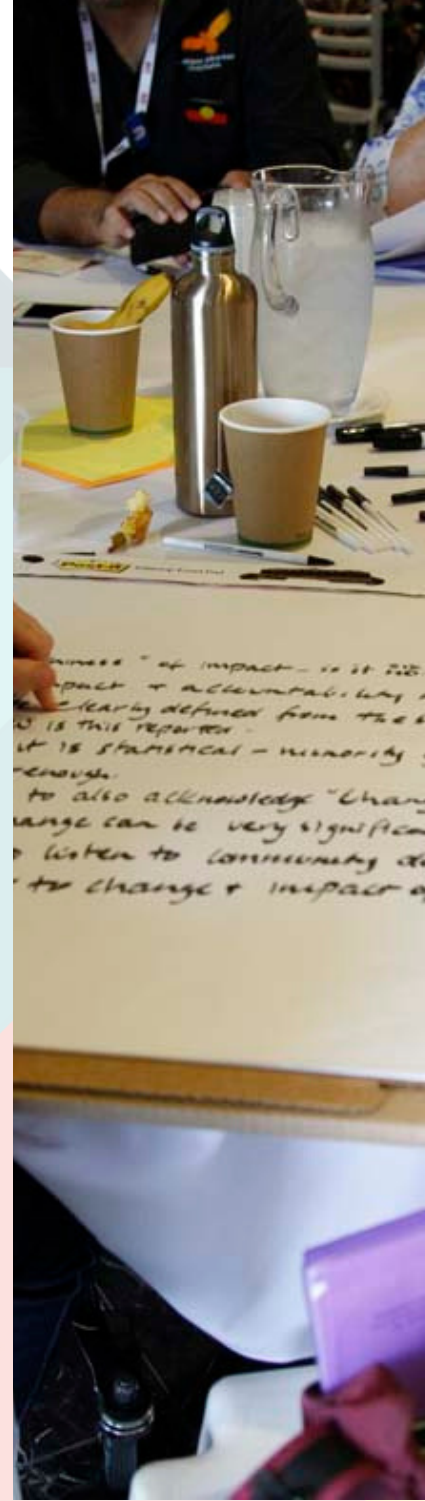 Post-it
" of impact - is it
impact + accountability
clearly defined from the
is this reported -
it is statistical - minority
enough.
to also acknowledge "Chang
ange can be very significa
listen to community de
to change + impact o